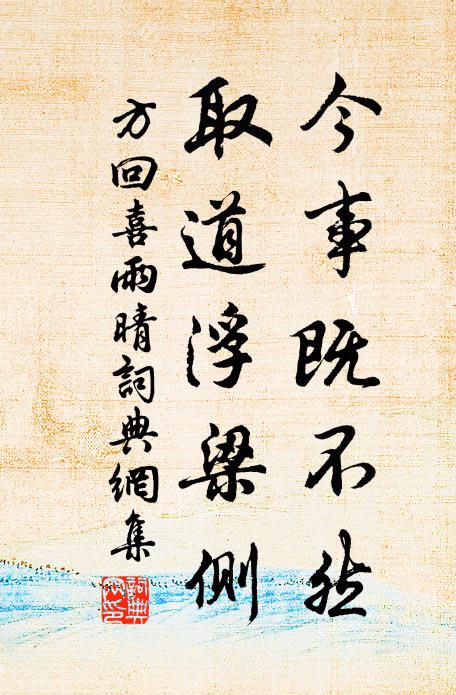 今事既不然
取道浮梁側
方回喜雨晴詞典網集